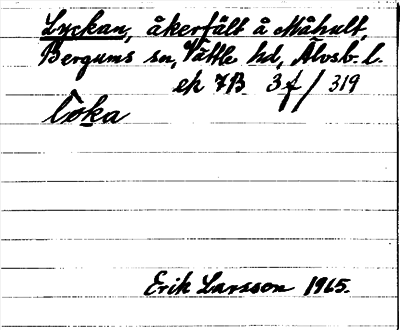 Lyckan, åkerfält å Måhult,
Bergums sn, Vättle hd, Älvsb. l.
ek 7B 3f/319
lo̊ka
Erik Larsson 1965.